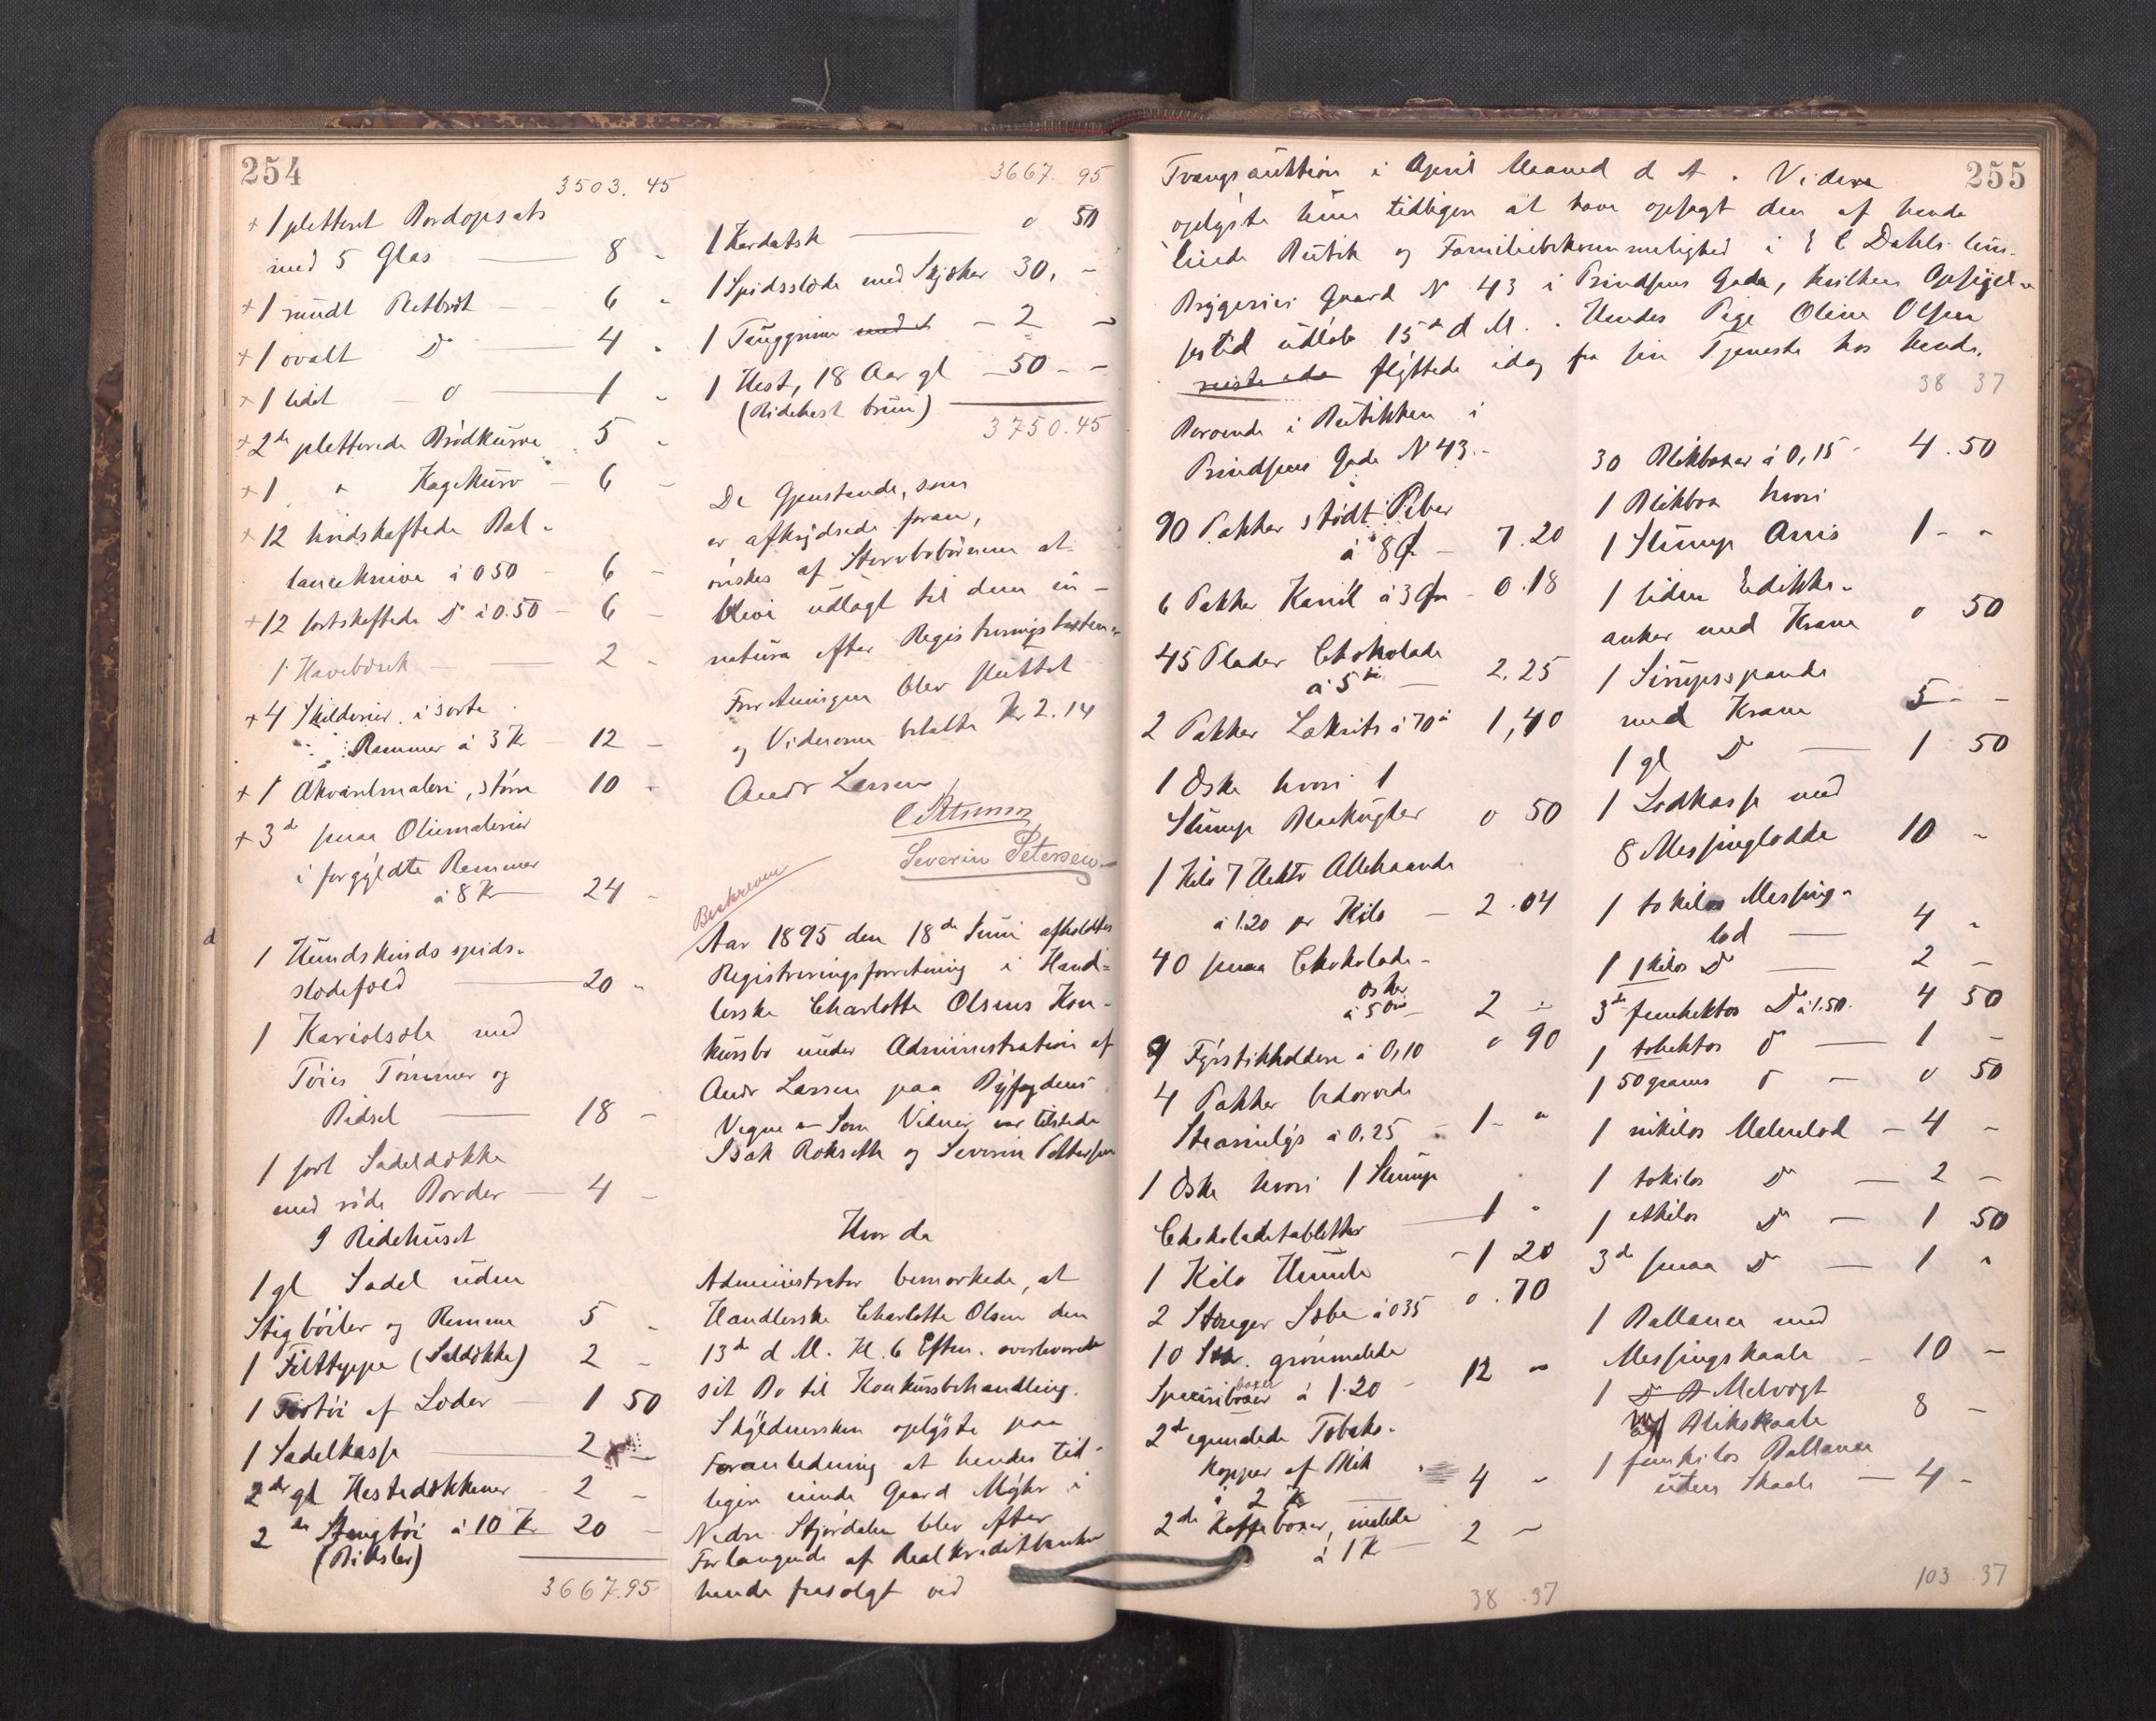 254
3503. 45
+ 1 plettert Bordopsats
med 5 Glas — 8 -
+ 1 rundt Brødbræt — 6 -
+ 1 ovalt Do — 4 -
+ 1 lidet — o — 1 -
+ 2de pletterede Brödkurve 5 -
+ 1 " Kagekurv — 6 -
+ 12 hvidskaftede Bal-
lanceknive à 0 50 — 6 -
+ 12 sortskaftede Do à 0.50 — 6 -
1 Havebænk — 2 -
+ 4 Skilderier i sorte
Rammer à 3 Kr 12 -
+ 1 Akvarelmaleri, större 10 -
+ 3de smaa Oliemalerier
i forgyldte Rammer
à 8 Kr — 24 -
1 Hundskinds spids-
slædefeld — 20 -
1 Kariolsæle med
Töier Tömmer og
Bidsel — 18 -
1 sort Sadeldække
med röde Border — 4 -
I Ridehuset
1 gl Sadel uden
Stigböiler og Remme 5 -
1 Filttæppe (Saldække) 2 -
1 Fortöi af Læder — 1 50
1 Sadelkasse — 2 -
2de gl Hestedækkener - 2 -
2de Stangtöi à 10 Kr 20 -
(Bidsler)
3667.95
3667. 95
1 Kardætsk — o 50
1 Spidsslæde med Skjæker 30, -
1 Tauggrime med t — 2 -
1 Hest, 18 Aar gl — 50 - -
(Ridehest brun)
3750.45
De Gjenstande, som
er afkrydsede foran,
önskes af Stervboboerne at
blive udlagt til dem in-
natura efter Registreringstaxten.
Forretningen blev sluttet
og Viderne betalte Kr 2.14
Andr Larsen
C Pettersen
Severin Petersen
Beskreven
Aar 1895 den 18de Juni afholdtes
Registreringsforretning i Hand-
lerske Charlotte Olsens Kon-
kursbo under Administration af
Andr Larsen paa Byfogdens
Vegne — Som Vidner var tilstede
Isak Rokseth og Severin Pettersen
Hvor da
Administrator bemærkede, at
Handlerske Charlotte Olsen den
13de d M. Kl. 6 Efterm. overleverede
sit Bo til Konkursbehandling.
Skyldnersken oplyste paa
Foranledning at hendes tid-
ligere eiende Gaard Myhr i
Nedre Stjördalen blev efter
Forlangende af Realkreditbanken
hende frasolgt ved
255
Tvangsauktion i April Maaned d A. Videre
oplyste hun tidligere at have opsagt den af hende
leiede Butik og Familiebekvemmelighed i E C Dahls
Bryggeries Gaard N 43 i Prindsens Gade, hvilken Opsigel-
sestid udlöb 15de d M. Hendes Pige Oline Olsen
reiste ida flyttede idag fra sin Tjeneste hos hende.
Beroende i Butikken i
Prindsens Gade N 43.-
90 Pakker stödt Peber
à 8 Ø — 7.20
6 Pakker Kanil à 3 Ø - 0.18
45 Plader Chokolade
à 5 ø — 2.25
2 Pakker Lakrits à 70 ø 1,40
1 Æske hvori 1
Slump Blaakugler o 50
1 Kilo 7 Hekto Allehaande
à 1.20 pr Kilo — 2.04
40 smaa Chokolade-
æsker
à 5 öre — 2 -
9 Fyrstikholdere à 0,10 o 90
4 Pakker bedærvede
Stearinlys à 0,25 - 1 - "
1 Æske hvori 1 Slump
Chokoladetabletter — 1 -
1 Kilo Humle — 1 20
2 Stænger Sæbe à 035 o.70
10 Stk. grönmalede
Specieriboxer boxer à 1.20 - 12 -
2de egemalede Tobaks-
kopper af Blik
à 2 Kr — 4 -
2de Kaffeboxer, malede
à 1 Kr — 2 -
38.37
38 37
30 Blikboxer à 0,15 - 4.50
1 Blikbox hvori
1 Slump Anis 1 - -
1 liden Edikke-
anker med Krane o 50
1 Sirupsspande
med Krane 5 - -
1 gl Do — 1 50
1 Lodkasse med
8 Messinglodde 10 -
1 tokilos Messing-
lod — 4 -
1 1 kilos Do — 2 -
3de femhektos Do à 1.50. 4 50
1 tohektos o — 1 -
1 50 grams o — o 50
1 nikilos Malmlod — 4 -
1 tokilos Do — 2 -
1 etkilos Do — 1 50
3de smaa Do — 1 "
1 Ballance med
Messingskaale - 10 -
1 Do Melvægt
Blikskaale 8 -
1 femkilos Ballance
uden Skaale — 4 -
103 37